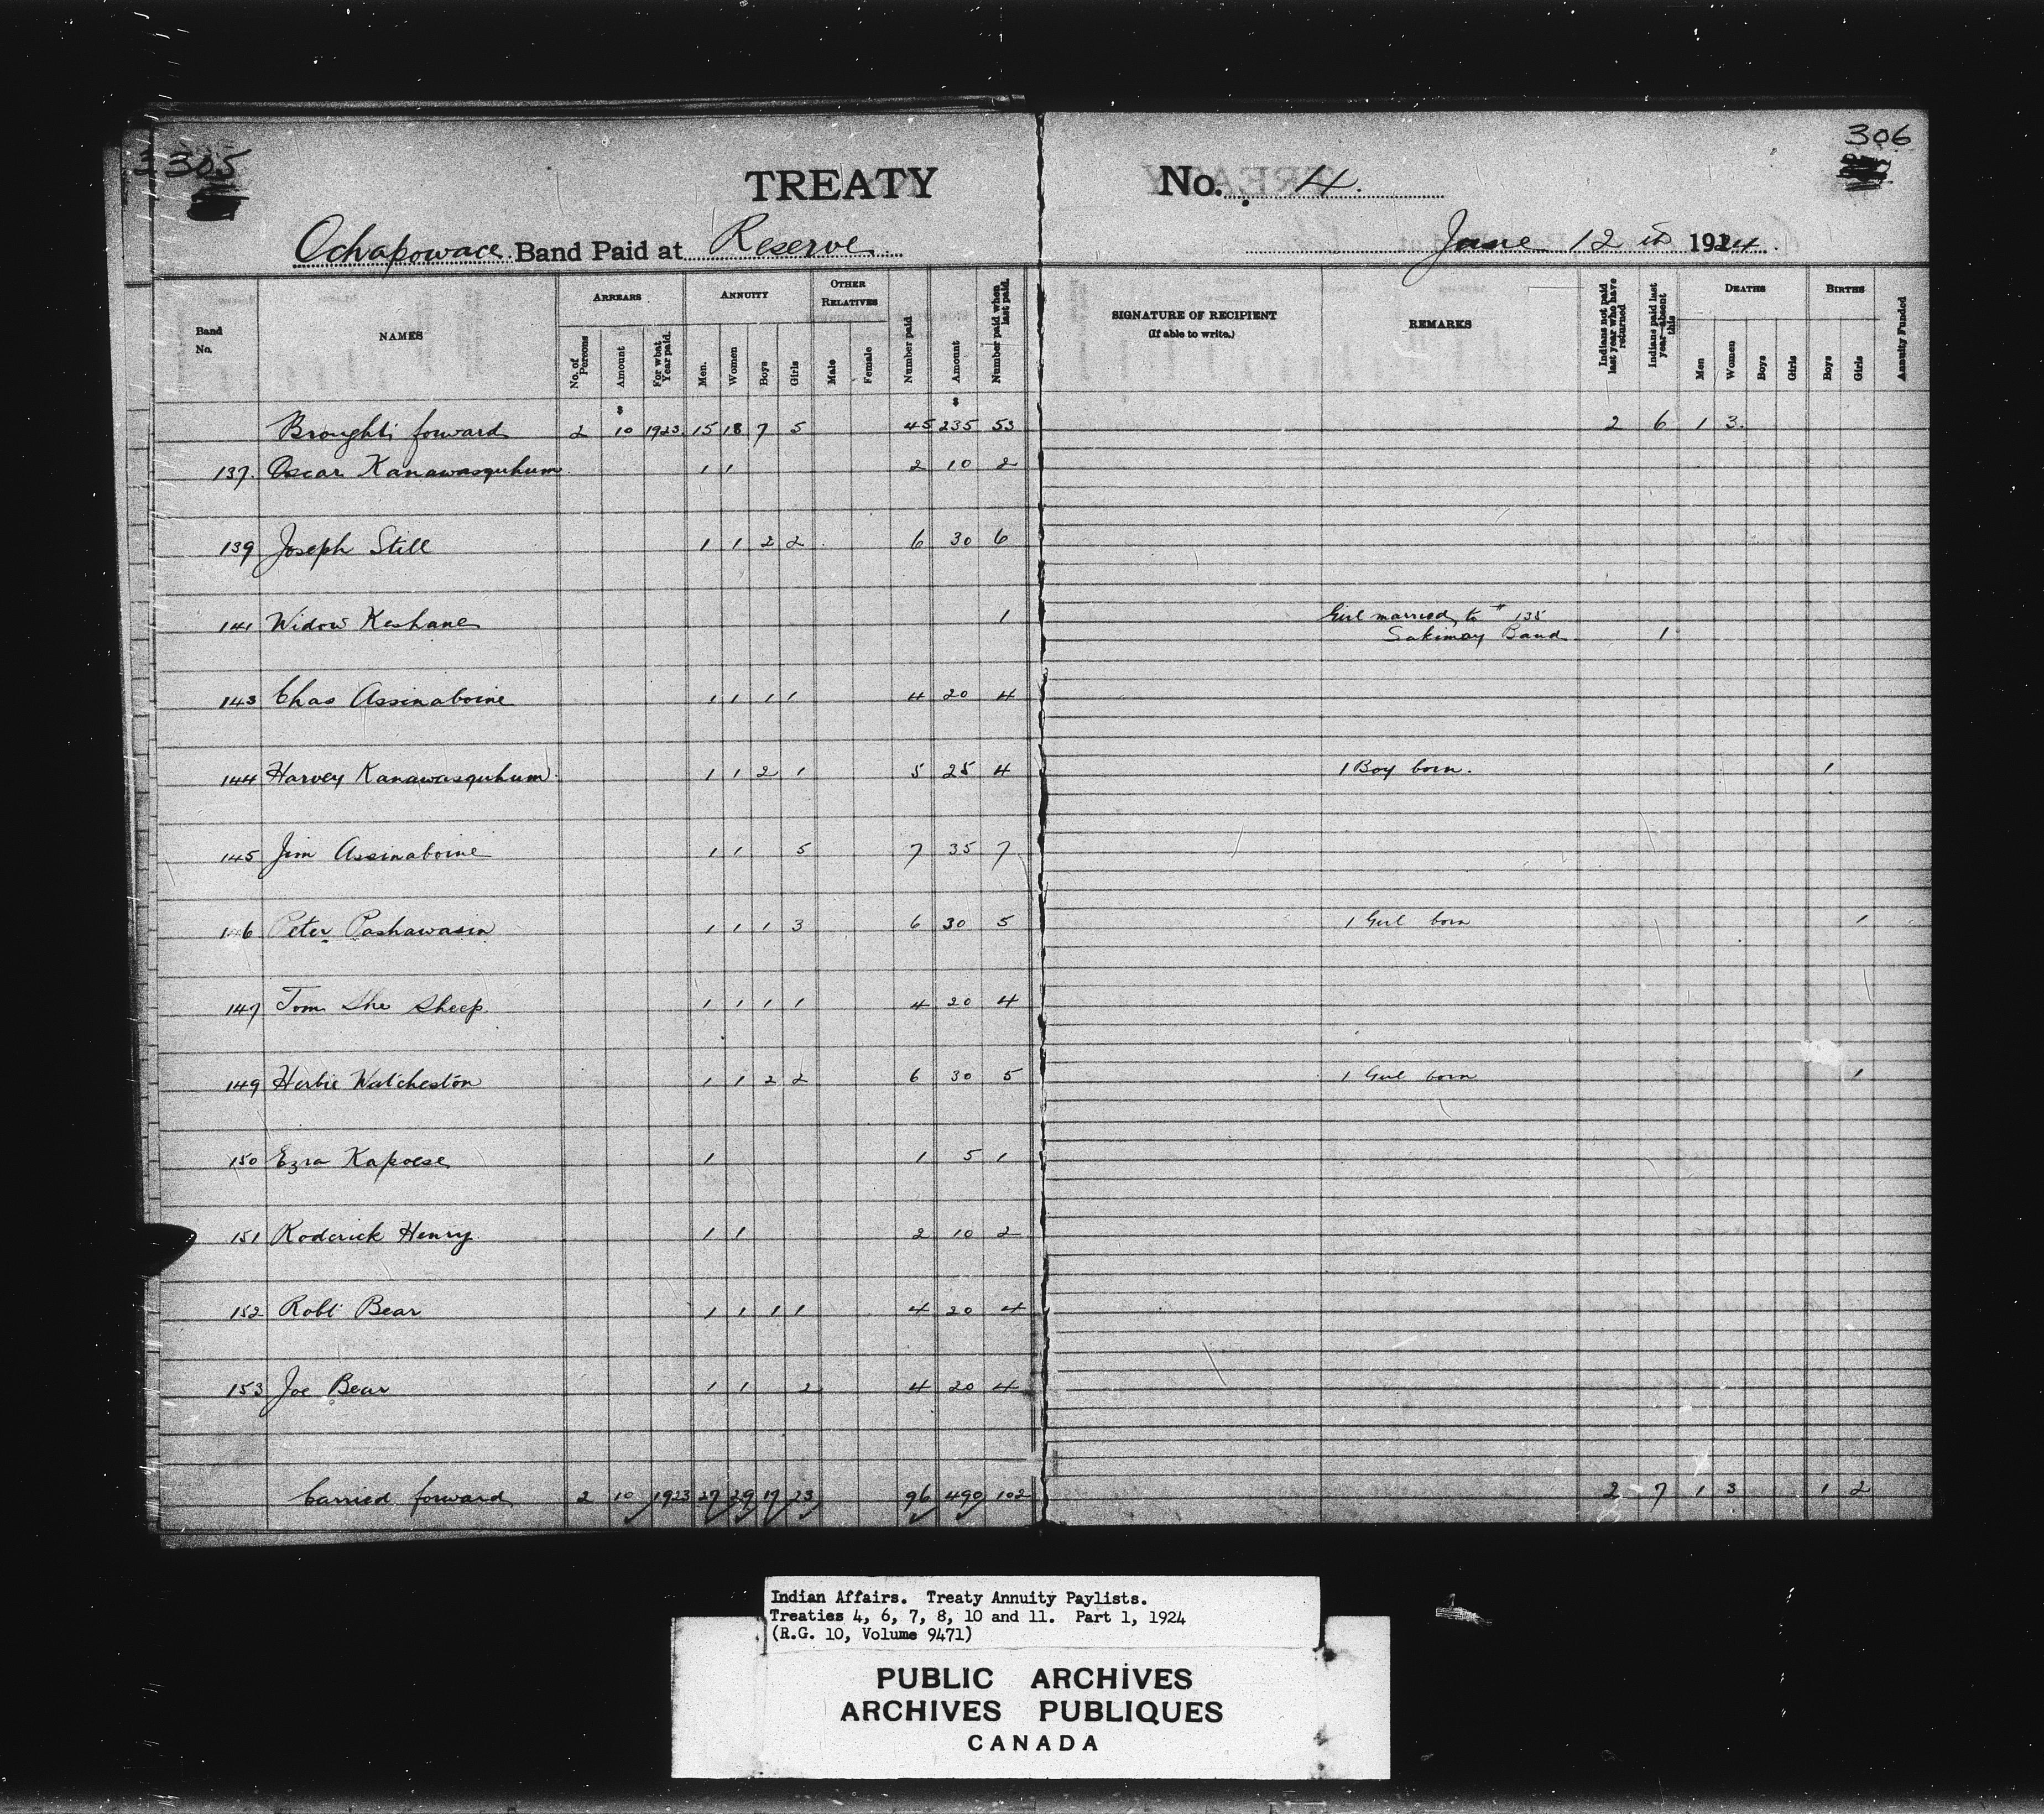 305
306
TREATY No. 4.
Ochapowace Band Paid at Reserve June 12th 1924.
Band No.
NAMES
ARREARS
No. of Persons
Amount
For what Year paid.
ANNUITY
Men.
Women
Boys
Girls
OTHER RELATIVES
Male
Female
Number paid
Amount
Number paid when last paid.
SIGNATURE OF RECIPIENT
(If able to write.)
REMARKS
Indians not paid last year who have returned
Indians paid last year absent this
DEATHS
Men
Women
Boys
Girls
BIRTHS
Boys
Girls
Annuity Funded
$ $
Brought forward 2 10 1923 15 18 7 5 45 235 53 2 6 1 3.
137. Oscar Kanawasquhum 1 1 2 10 2
139 Joseph Still 1 1 2 2 6 30 6
141 Widow Keshane 1 Girl married to # 135
Sakimay Band 1
143 Chas Assinaboine 1 1 1 1 4 20 4
144 Harvey Kanawasquhum 1 1 2 1 5 25 4 1 Boy born. 1
145 Jim Assinaboine 1 1 5 7 35 7
146 Peter Pashawasin 1 1 1 3 6 30 5 1 Girl born 1
147 Tom She Sheep 1 1 1 1 4 20 4
149 Herbie Watcheston 1 1 2 2 6 30 5 1 Girl born 1
150 Ezra Kapoese 1 1 5 1
151 Roderick Henry 1 1 2 10 2
152 Robt Bear 1 1 1 1 4 20 4
153 Joe Bear 1 1 2 4 20 4
Carried forward 2 10 1923 27 29 17 23 96 490 102 2 7 1 3 1 2
Indian Affairs. Treaty Annuity Paylists.
Treaties 4, 6, 7, 8, 10 and 11. Part 1, 1924
(R.G. 10, Volume 9471)
PUBLIC ARCHIVES
ARCHIVES PUBLIQUES
CANADA